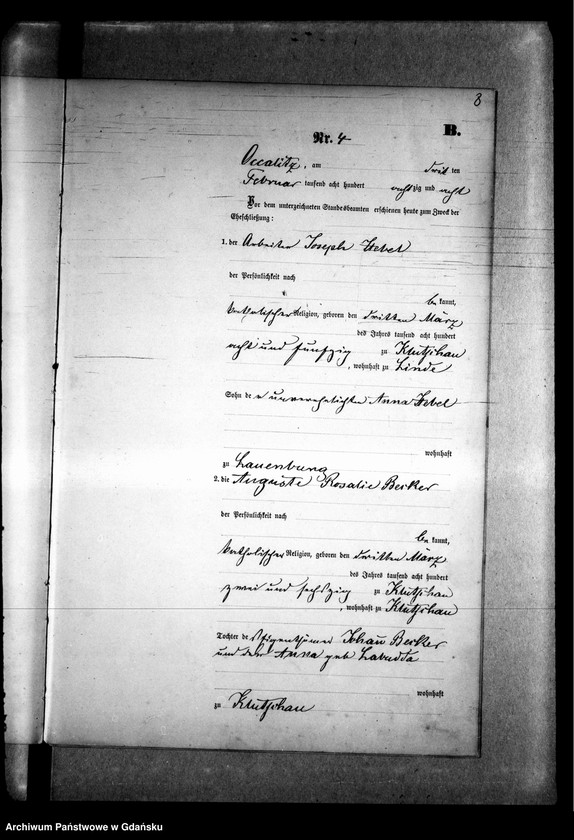 8
B.
Nr. 4
Occalitz, am dritten
Februar tausend acht hundert achtzig und acht
Vor dem unterzeichneten Standesbeamten erschienen heute zum Zweck der
Eheschließung:
1. der Arbeiter Joseph Hebel
der Persönlichkeit nach
be kannt,
katholischer Religion, geboren den dritten März
des Jahres tausend acht hundert
acht und funfzig zu Klutschau
, wohnhaft zu Linde
Sohn der unverehelichten Anna Hebel
wohnhaft
zu Lauenburg
2. die Auguste Rosalie Becker
der Persönlichkeit nach
be kannt,
katholischer Religion, geboren den dritten März
des Jahres tausend acht hundert
zwei und sechszig zu Klutschau
, wohnhaft zu Klutschau
Tochter des Eigenthümer Johann Becker
und der Anna geb Labudda
wohnhaft
zu Klutschau
Archiwum Państwowe w Gdańsku